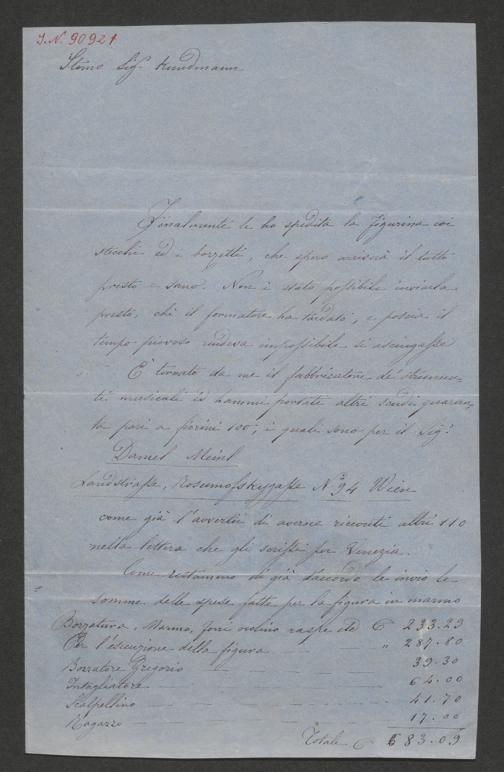 I.N. 90921
Stimo Sigr Kundmann
Finalmente le ho spedita la figurina coi
stecchi ed i bozzetti, che spero arriverà il tutto
presto e sano. Non è stato possibile inviarla
presto, chè il formatore ha tardato, e poscia il
tempo piovoso rendeva impossibile si asciugasse
È tornato da me il fabbricatore de' strumen-
ti musicali ed hammi portate altri scudi quaran-
ta pari a fiorini 100, i quali sono per il Sigr
Daniel Meinl
Landstrasse, Rosumofskygasse No 94 Wien
come già l'avvertii di averne ricevuti altri 110
nella lettera che gli scrissi per Venezia.
Come restammo di già d'accordo le invio le
somme delle spese fatte per la figura in marmo
Bozzatura, Marmo, fori violino raspe etc £ 233.29
Per l'esecuzione della figura " 287.80
Bozzatore Gregorio 39.30
Intagliatore 64.00
Scalpellino 41.70
Ragazzo 17.00
Totale £ 683.09